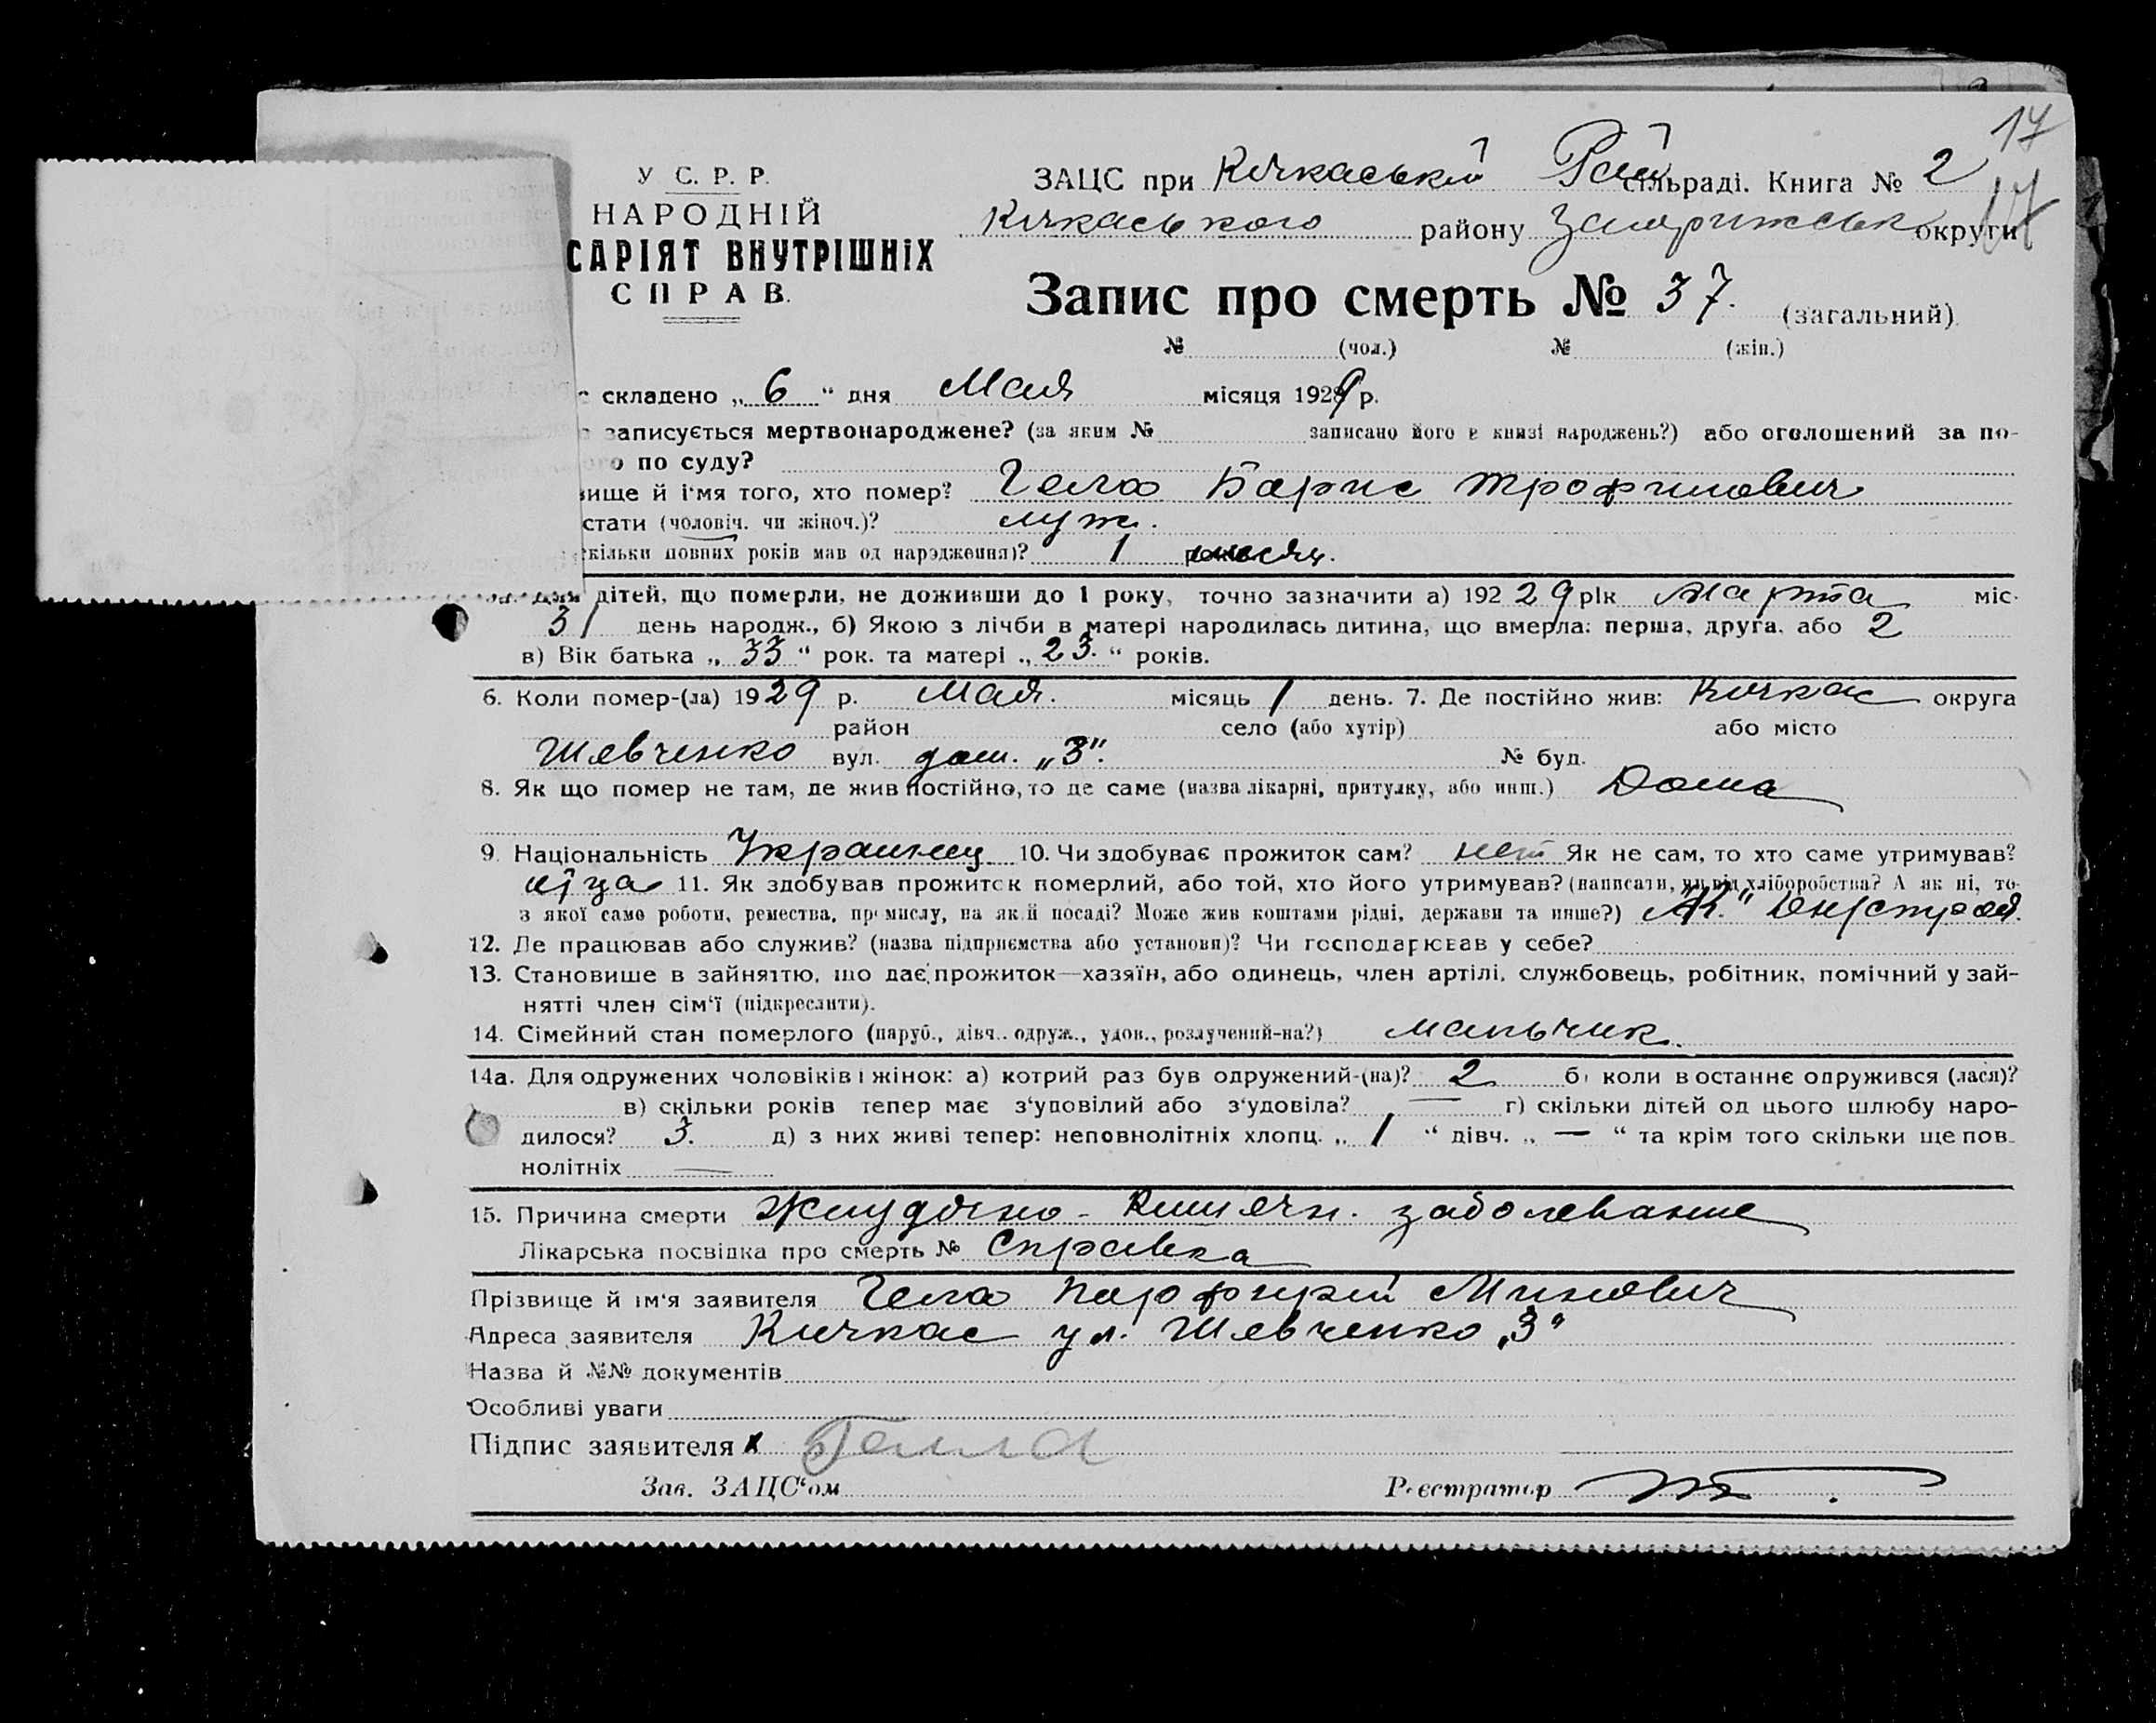 17
У С. Р. Р.
НАРОДНІЙ
САРІЯТ ВНУТРІШНІХ
СПРАВ.
ЗАЦС при Кічкаській Рай сільраді. Книга № 2
Кічкаського району Запорижськ округи 17
Запис про смерть № 37. (загальний)
№ (чол.) № (жін.)
складено „ 6 “ дня Мая місяця 1929 р.
записується мертвонароджене? (за яким № записано його в книзі народжень?) або оголошений за по-
по суду?
ище й ім'я того, хто помер? Гела Барис Трофимович
стати (чоловіч. чи жіноч.)? муж.
кільки повних років мав од народження)? 1 месяц.
дітей, що померли, не доживши до 1 року, точно зазначити а) 192 29 рік Марта міс.
31 день народж., б) Якою з лічби в матері народилась дитина, що вмерла: перша, друга, або 2
в) Вік батька „ 33 “ рок. та матері „ 23. “ років.
6. Коли помер-(ла) 1929 р. Мая. місяць 1 день. 7. Де постійно жив: Кичкас округа
район село (або хутір) або місто
Шевченко вул. дом. „3“. № буд.
8. Як що помер не там, де жив постійно, то де саме (назва лікарні, притулку, або инш.) Дома
9. Національність Украинец 10. Чи здобуває прожиток сам? нет Як не сам, то хто саме утримував?
11. Як здобував прожиток померлий, або той, хто його утримував? (написати, чи від хліборобства? А як ні, то
з якої саме роботи, ремества, промислу, на якій посаді? Може жив коштами рідні, держави та инше?) Днепрострой.
12. Де працював або служив? (назва підприємства або установи)? Чи господарював у себе?
13. Становище в зайняттю, що дає прожиток—хазяїн, або одинець, член артілі, службовець, робітник, помічний у зай-
нятті член сім'ї (підкреслити).
14. Сімейний стан померлого (паруб., дівч.. одруж., удов., розлучений-на?) мальчик.
14а. Для одружених чоловіків і жінок: а) котрий раз був одружений-(на)? 2 б) коли в останнє одружився (лася)?
в) скільки років тепер має з'уповілий або з'удовіла? — г) скільки дітей од цього шлюбу наро-
дилося? 3. д) з них живі тепер: неповнолітніх хлопц. „ 1 “ дівч. „ — “ та крім того скільки ще пов-
нолітніх —
15. Причина смерти Жилудочно - Кишечн. заболевание
Лікарська посвідка про смерть № Справка
Прізвище й ім'я заявителя Гела Парфирий Минович
Адреса заявителя Кичкас ул. Шевченко „3“
Назва й №№ документів
Особливі уваги
Підпис заявителя Гелла
Зав. ЗАЦС'ом Реєстратор